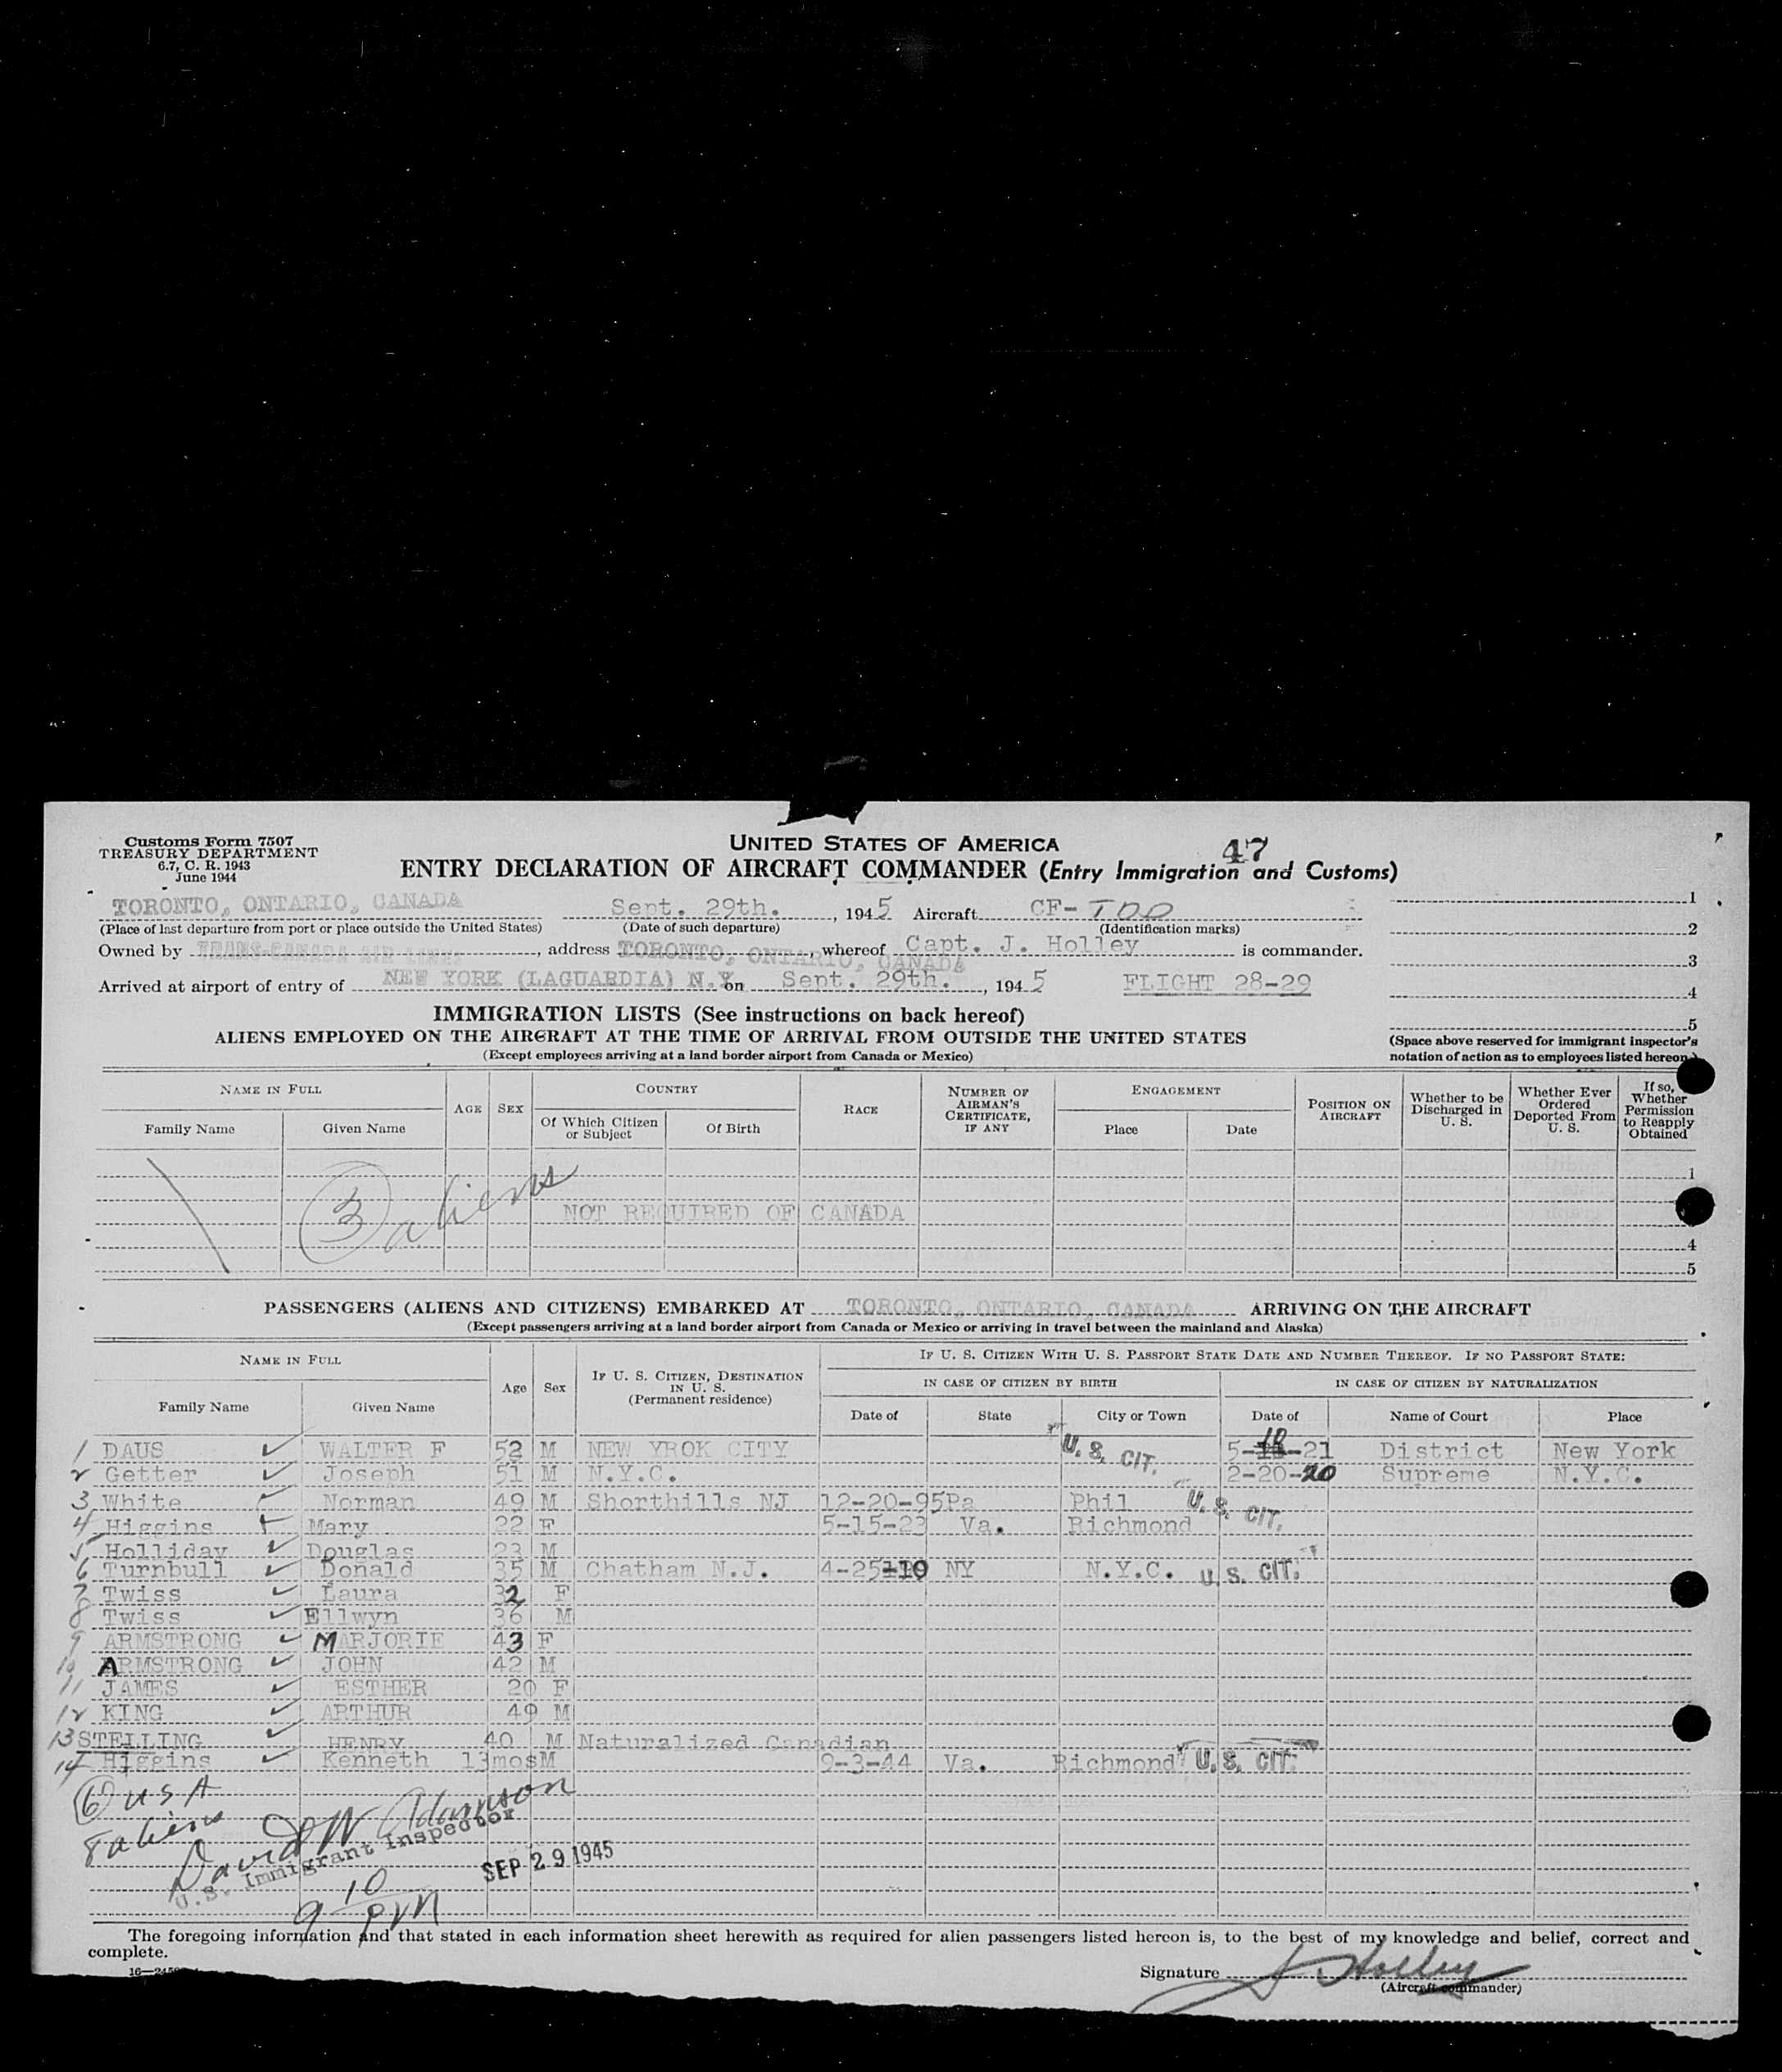 Customs Form 7507
TREASURY DEPARTMENT
6.7, C. R. 1943
June 1944
UNITED STATES OF AMERICA
47
ENTRY DECLARATION OF AIRCRAFT COMMANDER (Entry Immigration and Customs)
TORONTO, ONTARIO, CANADA Sept. 29th. , 1945 Aircraft CF- TDD 1
(Place of last departure from port or place outside the United States) (Date of such departure) (Identification marks) 2
Owned by TRANS-CANADA AIR LINES , address TORONTO, ONTARIO, CANADA , whereof Capt. J. Holley is commander. 3
Arrived at airport of entry of NEW YORK (LAGUARDIA) N.Y. on Sept. 29th. , 1945 FLIGHT 28-29 4
5
IMMIGRATION LISTS (See instructions on back hereof)
ALIENS EMPLOYED ON THE AIRCRAFT AT THE TIME OF ARRIVAL FROM OUTSIDE THE UNITED STATES
(Except employees arriving at a land border airport from Canada or Mexico)
(Space above reserved for immigrant inspector's notation of action as to employees listed hereon.)
NAME IN FULL AGE SEX COUNTRY RACE NUMBER OF AIRMAN'S CERTIFICATE, IF ANY ENGAGEMENT POSITION ON AIRCRAFT Whether to be Discharged in U. S. Whether Ever Ordered Deported From U. S. If so, Whether Permission to Reapply Obtained
Family Name Given Name Of Which Citizen or Subject Of Birth Place Date
1
3 aliens
NOT REQUIRED OF CANADA
4
5
PASSENGERS (ALIENS AND CITIZENS) EMBARKED AT TORONTO, ONTARIO, CANADA ARRIVING ON THE AIRCRAFT
(Except passengers arriving at a land border airport from Canada or Mexico or arriving in travel between the mainland and Alaska)
NAME IN FULL Age Sex IF U. S. CITIZEN, DESTINATION IN U. S. (Permanent residence) IF U. S. CITIZEN WITH U. S. PASSPORT STATE DATE AND NUMBER THEREOF. IF NO PASSPORT STATE:
IN CASE OF CITIZEN BY BIRTH IN CASE OF CITIZEN BY NATURALIZATION
Family Name Given Name Date of State City or Town Date of Name of Court Place
1 DAUS WALTER F 52 M NEW YROK CITY U. S. CIT. 5-10-21 District New York
2 Getter Joseph 51 M N.Y.C. 2-20-20 Supreme N.Y.C.
3 White Norman 49 M Shorthills NJ 12-20-95 Pa Phil U. S. CIT.
4 Higgins Mary 22 F 5-15-23 Va. Richmond
5 Holliday Douglas 23 M
6 Turnbull Donald 35 M Chatham N.J. 4-25-10 NY N.Y.C. U. S. CIT.
7 Twiss Laura 32 F
8 Twiss Ellwyn 36 M
9 ARMSTRONG MARJORIE 43 F
10 ARMSTRONG JOHN 42 M
11 JAMES ESTHER 20 F
12 KING ARTHUR 49 M
13 STELLING HENRY 40 M Naturalized Canadian
14 Higgins Kenneth 13mos M 9-3-44 Va. Richmond U. S. CIT.
6 USA
8 aliens
David W Adamson
U.S. Immigrant Inspector
SEP 29 1945
9 10 pm
The foregoing information and that stated in each information sheet herewith as required for alien passengers listed hereon is, to the best of my knowledge and belief, correct and
complete.
Signature J Holley
(Aircraft commander)